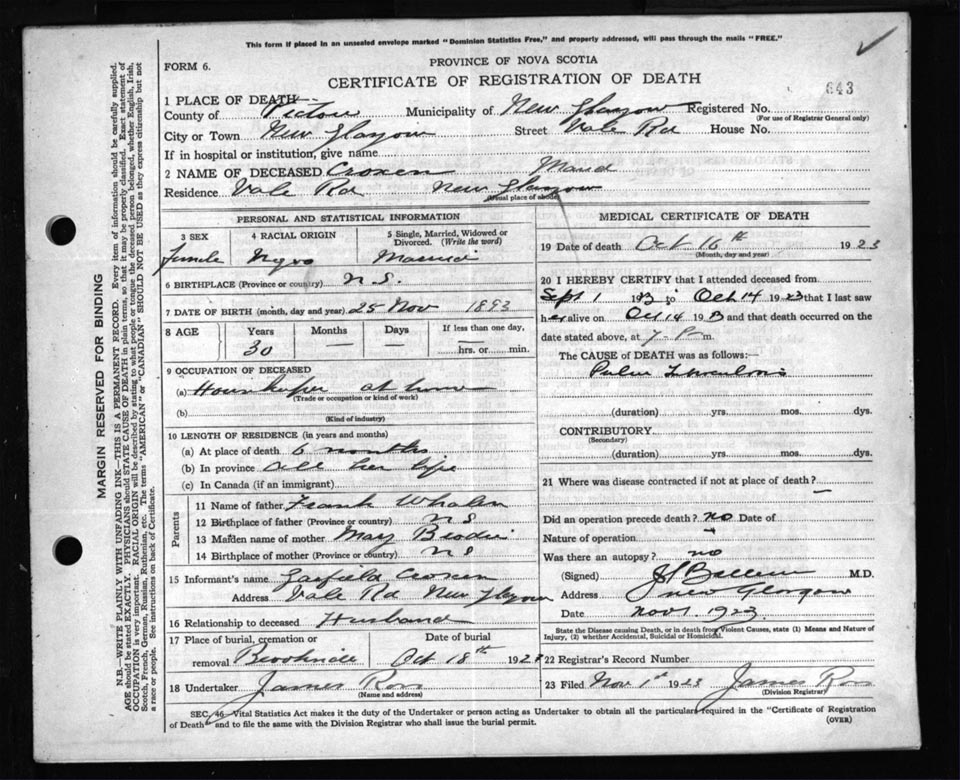 This form if placed in an unsealed envelope marked "Dominion Statistics Free," and properly addressed, will pass through the mails "FREE."
PROVINCE OF NOVA SCOTIA
FORM 6.
CERTIFICATE OF REGISTRATION OF DEATH
643
1 PLACE OF DEATH—
County of Pictou Municipality of New Glasgow Registered No.
(For use of Registrar General only)
City or Town New Glasgow Street Vale Rd House No.
If in hospital or institution, give name
2 NAME OF DECEASED Croxen Maud
Residence Vale Rd New Glasgow
(Usual place of abode)
PERSONAL AND STATISTICAL INFORMATION
3 SEX 4 RACIAL ORIGIN 5 Single, Married, Widowed or Divorced. (Write the word)
Female Negro Married
6 BIRTHPLACE (Province or country) N.S.
7 DATE OF BIRTH (month, day and year) 25 Nov 1893
8 AGE Years Months Days If less than one day,
30 — — hrs. or min.
9 OCCUPATION OF DECEASED
(a) Housekeeper at home
(Trade or occupation or kind of work)
(b)
(Kind of industry)
10 LENGTH OF RESIDENCE (in years and months)
(a) At place of death 6 months
(b) In province all her life
(c) In Canada (if an immigrant)
Parents
11 Name of father Frank Whalen
12 Birthplace of father (Province or country) N S
13 Maiden name of mother Mary Brodie
14 Birthplace of mother (Province or country) N S
15 Informant's name Garfield Croxen
Address Vale Rd New Glasgow
16 Relationship to deceased Husband
17 Place of burial, cremation or removal Date of burial
Oct 18th 1923
18 Undertaker James Ross
(Name and address)
MEDICAL CERTIFICATE OF DEATH
19 Date of death Oct 16th 1923
(Month, day and year)
20 I HEREBY CERTIFY that I attended deceased from
Sept 1 1923 to Oct 14 1923 that I last saw
her alive on Oct 14 1923 and that death occurred on the
date stated above, at 7 P m.
The CAUSE OF DEATH was as follows:—
(duration) yrs. mos. dys.
CONTRIBUTORY
(Secondary)
(duration) yrs. mos. dys.
21 Where was disease contracted if not at place of death? —
Did an operation precede death? no Date of
Nature of operation
Was there an autopsy? no
(Signed) M.D.
Address New Glasgow
Date Nov 1 1923
State the Disease causing Death, or in death from Violent Causes, state (1) Means and Nature of Injury, (2) whether Accidental, Suicidal or Homicidal.
22 Registrar's Record Number
23 Filed Nov 1st 1923 James Ross
(Division Registrar)
SEC. 46 Vital Statistics Act makes it the duty of the Undertaker or person acting as Undertaker to obtain all the particulars required in the "Certificate of Registration
of Death" and to file the same with the Division Registrar who shall issue the burial permit.
(OVER)
MARGIN RESERVED FOR BINDING
N.B.—WRITE PLAINLY WITH UNFADING INK—THIS IS A PERMANENT RECORD. Every item of information should be carefully supplied.
AGE should be stated EXACTLY. PHYSICIANS should STATE CAUSE OF DEATH in plain terms, so that it may be properly classified. Exact statement of
OCCUPATION is very important. RACIAL ORIGIN will be described by stating to what people or tongue the deceased person belonged, whether English, Irish,
Scotch, French, German, Russian, Ruthenian, etc. The terms "AMERICAN" or "CANADIAN" SHOULD NOT BE USED as they express citizenship but not
a race or people. See instructions on back of Certificate.